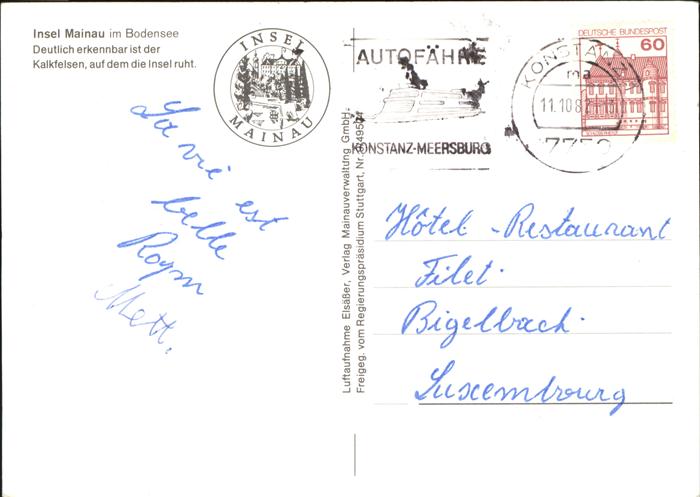 Insel Mainau im Bodensee
Deutlich erkennbar ist der
Kalkfelsen, auf dem die Insel ruht.
INSEL
MAINAU
AUTOFÄHRE
KONSTANZ-MEERSBURG
KONSTANZ
ma
11.10.82
775
DEUTSCHE BUNDESPOST
60
La vie est
belle
Roym
Mett.
Luftaufnahme Elsäßer, Verlag Mainauverwaltung GmbH.
Freigeg. vom Regierungspräsidium Stuttgart, Nr.
Hôtel - Restaurant
Filet.
Bigelbach.
Luxembourg